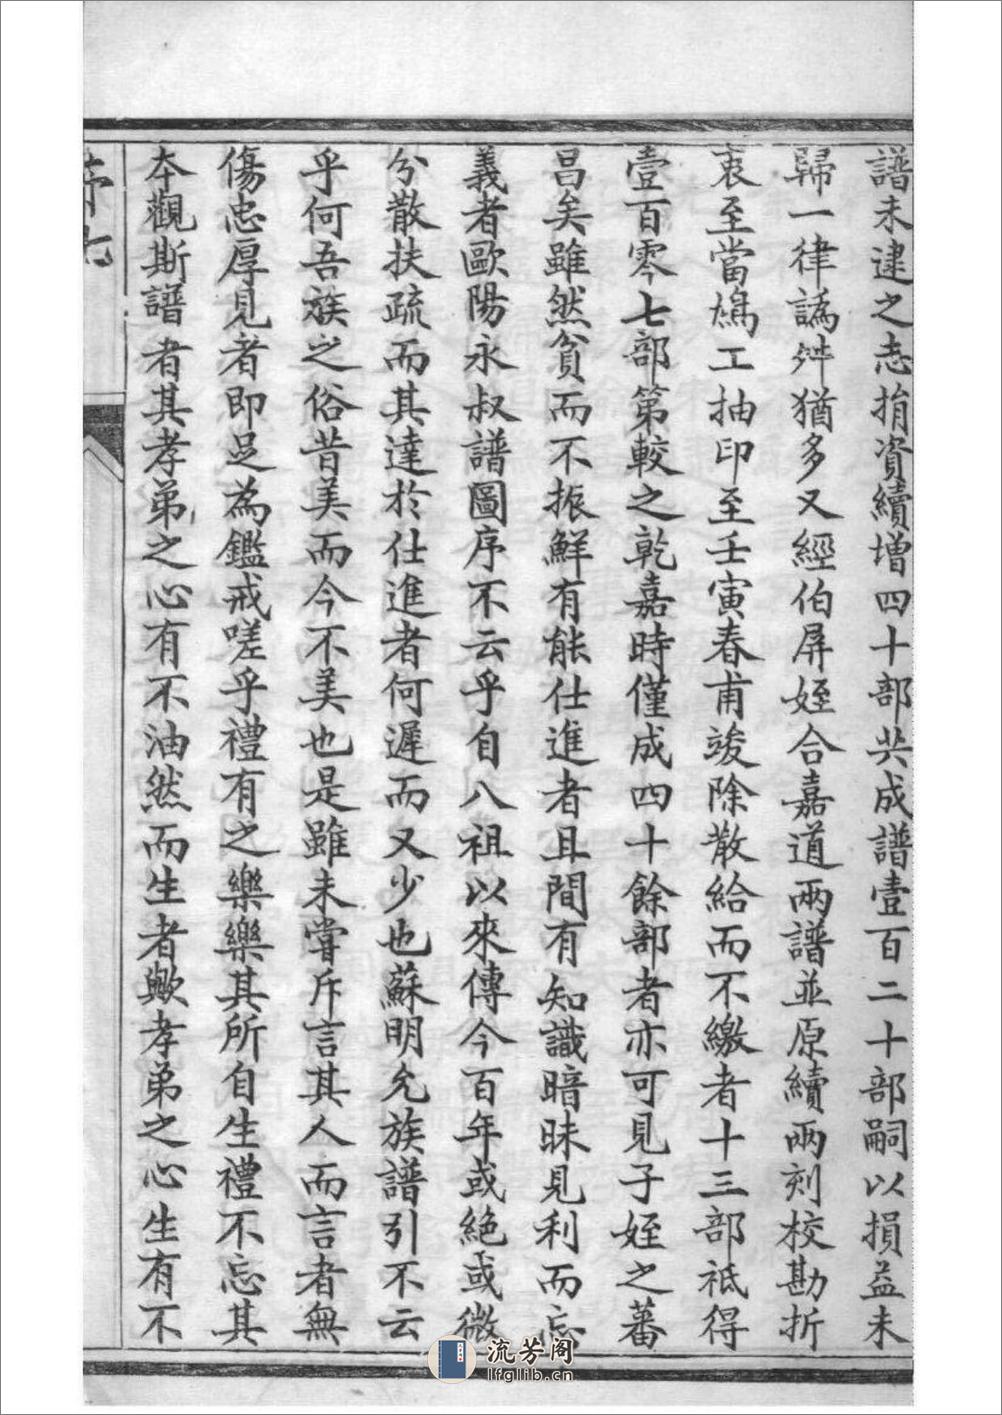 譜未逮之志捐資續增四十部共成譜壹百二十部嗣以損益未
歸一律譌舛猶多又經伯屏姪合嘉道兩譜並原續兩刻校勘折
衷至當鳩工抽印至壬寅春甫竣除散給而不繳者十三部祗得
壹百零七部第較之乾嘉時僅成四十餘部者亦可見子姪之蕃
昌矣雖然貧而不振鮮有能仕進者且間有知識暗昧見利而忘
義者歐陽永叔譜圖序不云乎自八祖以來傳今百年或絕或微
分散扶疏而其達於仕進者何遲而又少也蘇明允族譜引不云
乎何吾族之俗昔美而今不美也是雖未嘗斥言其人而言者無
傷忠厚見者即足為鑑戒嗟乎禮有之樂樂其所自生禮不忘其
本觀斯譜者其孝弟之心有不油然而生者歟孝弟之心生有不
流芳阁
lfglib.cn